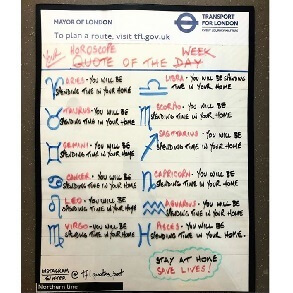 MAYOR OF LONDON
TRANSPORT
FOR LONDON
To plan a route, visit tfl.gov.uk
Your HOROSCOPE WEEK
QUOTE OF THE DAY
ARIES - YOU WILL BE
SPENDING TIME IN YOUR HOME
TAURUS - YOU WILL BE
SPENDING TIME IN YOUR HOME
GEMINI - YOU WILL BE
SPENDING TIME IN YOUR HOME
CANCER - YOU WILL BE
SPENDING TIME IN YOUR HOME
LEO - YOU WILL BE
SPENDING TIME IN YOUR HOME
VIRGO - YOU WILL BE
SPENDING TIME IN YOUR HOME
LIBRA - YOU WILL BE SPENDING
TIME IN YOUR HOME
SCORPIO - YOU WILL BE
SPENDING TIME IN YOUR HOME
SAGITTARIUS - YOU WILL BE
SPENDING TIME IN YOUR HOME
CAPRICORN - YOU WILL BE
SPENDING TIME IN YOUR HOME
AQUARIUS - YOU WILL BE
SPENDING TIME IN YOUR HOME
PISCES - YOU WILL BE
SPENDING TIME IN YOUR HOME.
STAY AT HOME
SAVE LIVES!
INSTAGRAM
TWITTER
Northern line